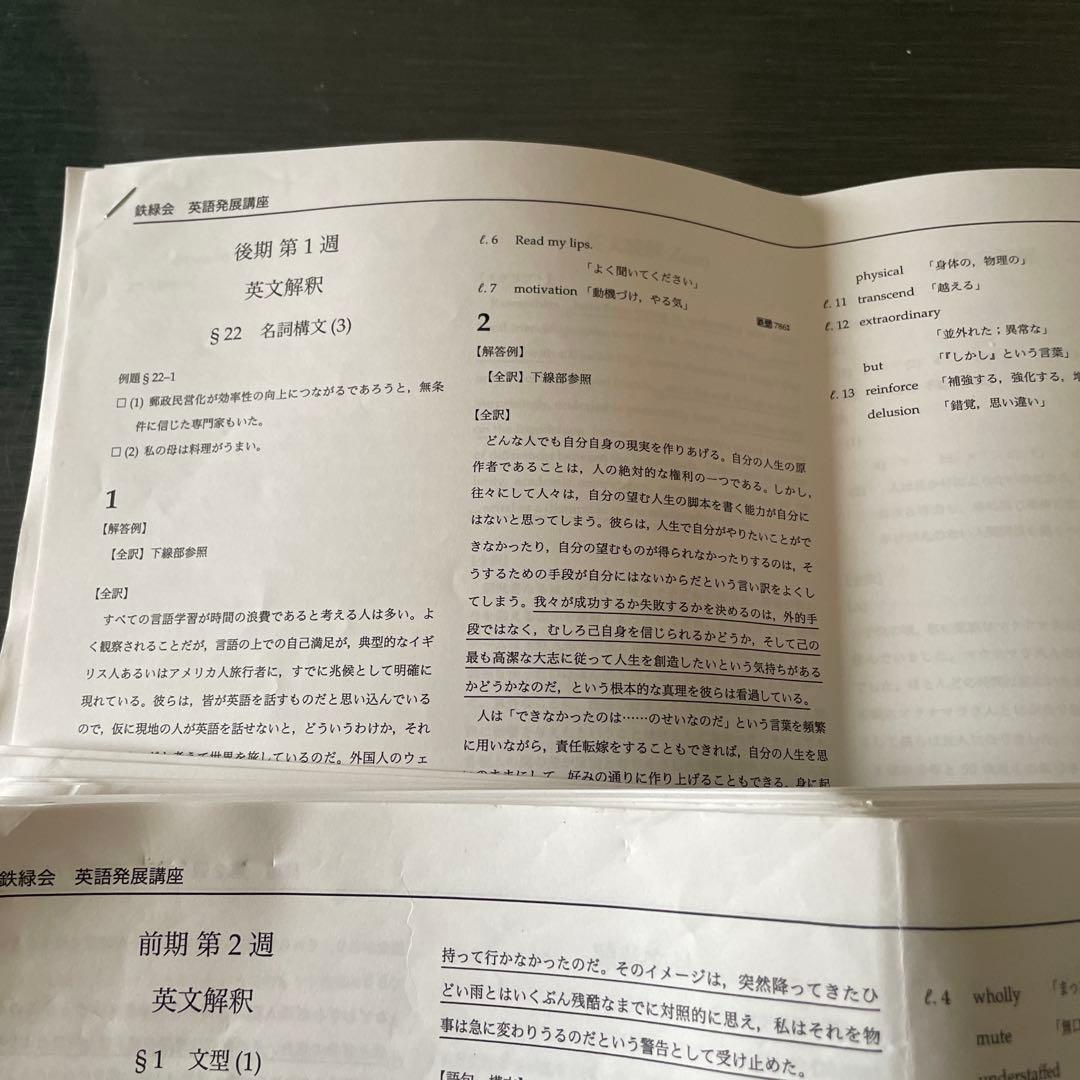 鉄緑会 英語発展講座
後期 第1週
英文解釈
§22 名詞構文(3)
例題§22–1
□(1) 郵政民営化が効率性の向上につながるであろうと，無条
件に信じた専門家もいた。
□(2) 私の母は料理がうまい。
1
【解答例】
【全訳】下線部参照
【全訳】
すべての言語学習が時間の浪費であると考える人は多い。よ
く観察されることだが，言語の上での自己満足が，典型的なイギ
リス人あるいはアメリカ人旅行者に，すでに兆候として明確に
現れている。彼らは，皆が英語を話すものだと思い込んでいる
ので，仮に現地の人が英語を話せないと，どういうわけか，それ
考えて世界を旅しているのだ。外国人のウェ
ℓ.6 Read my lips.
「よく聞いてください」
ℓ.7 motivation 「動機づけ，やる気」
7861
2
【解答例】
【全訳】下線部参照
【全訳】
どんな人でも自分自身の現実を作りあげる。自分の人生の原
作者であることは，人の絶対的な権利の一つである。しかし，
往々にして人々は，自分の望む人生の脚本を書く能力が自分に
はないと思ってしまう。彼らは，人生で自分がやりたいことがで
きなかったり，自分の望むものが得られなかったりするのは，そ
うするための手段が自分にはないからだという言い訳をよくし
てしまう。我々が成功するか失敗するかを決めるのは，外的手
段ではなく，むしろ己自身を信じられるかどうか，そして己の
最も高潔な大志に従って人生を創造したいという気持ちがある
かどうかなのだ，という根本的な真理を彼らは看過している。
人は「できなかったのは……のせいなのだ」という言葉を頻繁
に用いながら，責任転嫁をすることもできれば，自分の人生を思
いのままにして，好みの通りに作り上げることもできる。身に起
physical 「身体の，物理の」
ℓ.11 transcend 「越える」
ℓ.12 extraordinary
「並外れた；異常な」
but 「『しかし』という言葉」
ℓ.13 reinforce 「補強する，強化する，増
delusion 「錯覚，思い違い」
鉄緑会 英語発展講座
前期 第2週
英文解釈
§1 文型(1)
持って行かなかったのだ。そのイメージは，突然降ってきたひ
どい雨とはいくぶん残酷なまでに対照的に思え，私はそれを物
事は急に変わりうるのだという警告として受け止めた。
【語句・構文】
ℓ.4 wholly 「まっ
mute 「無口
understaffed